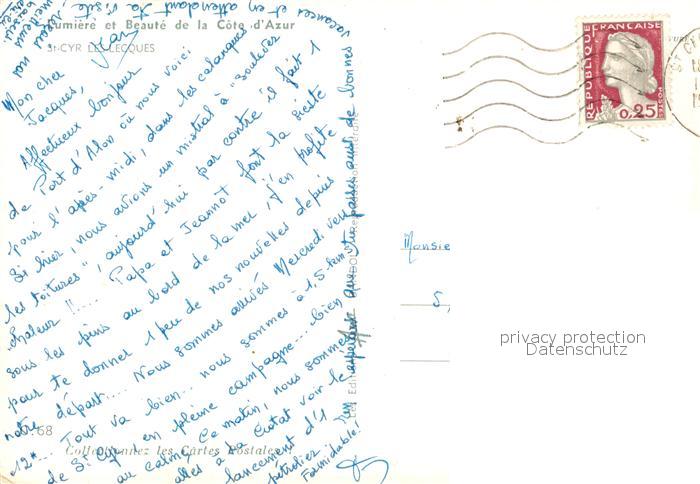 Lumière et Beauté de la Côte d'Azur
St-CYR LES LECQUES
Mon cher
Jacques,
Affectueux bonjour
de Port d'Alon où nous voici
pour l'après-midi, dans les calanques
Si hier, nous avions un mistral à "soulever
les toitures", aujourd'hui par contre il fait 1
chaleur !!.... Papa et Jeannot font la sieste
sous les pins au bord de la mer, j'en profite
pour te donner 1 peu de nos nouvelles depuis
notre départ... Nous sommes arrivés Mercredi vers
12h... Tout va bien... nous sommes à 1,5 km
de St Cyr, en pleine campagne... bien
au calme, Ce matin, nous sommes
allés à la Ciotat voir le
lancement d'1
pétrolier
Formidable!
un espérant que tu passes aussi de bonnes
vacances et en attendant ta visite
meilleurs
baisers
68
Collectionnez les Cartes Postales
REPUBLIQUE FRANCAISE
POSTES
0,25
ST CY
Monsie
5,
privacy protection
Datenschutz